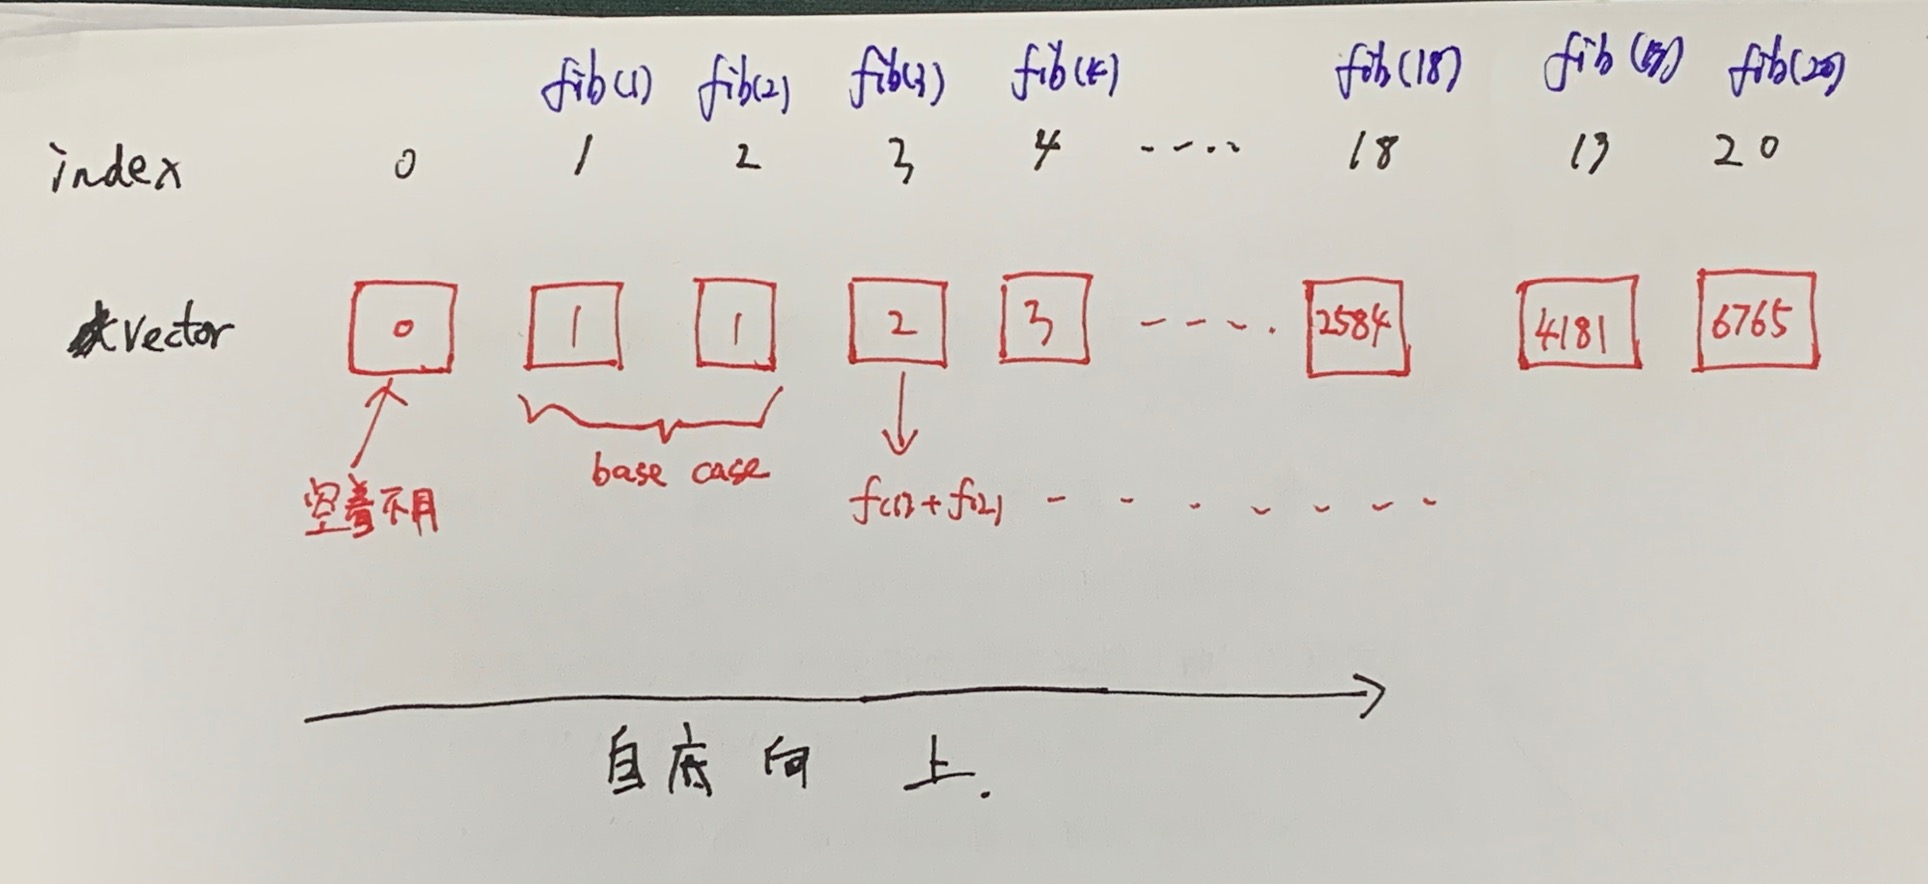 fib(1) fib(2) fib(3) fib(4) fib(18) fib(19) fib(20)
index 0 1 2 3 4 ---- 18 19 20
vector 0 1 1 2 3 ---- 2584 4181 6765
空着不用 base case f(1)+f(2) - - - - - - -
自底向上.